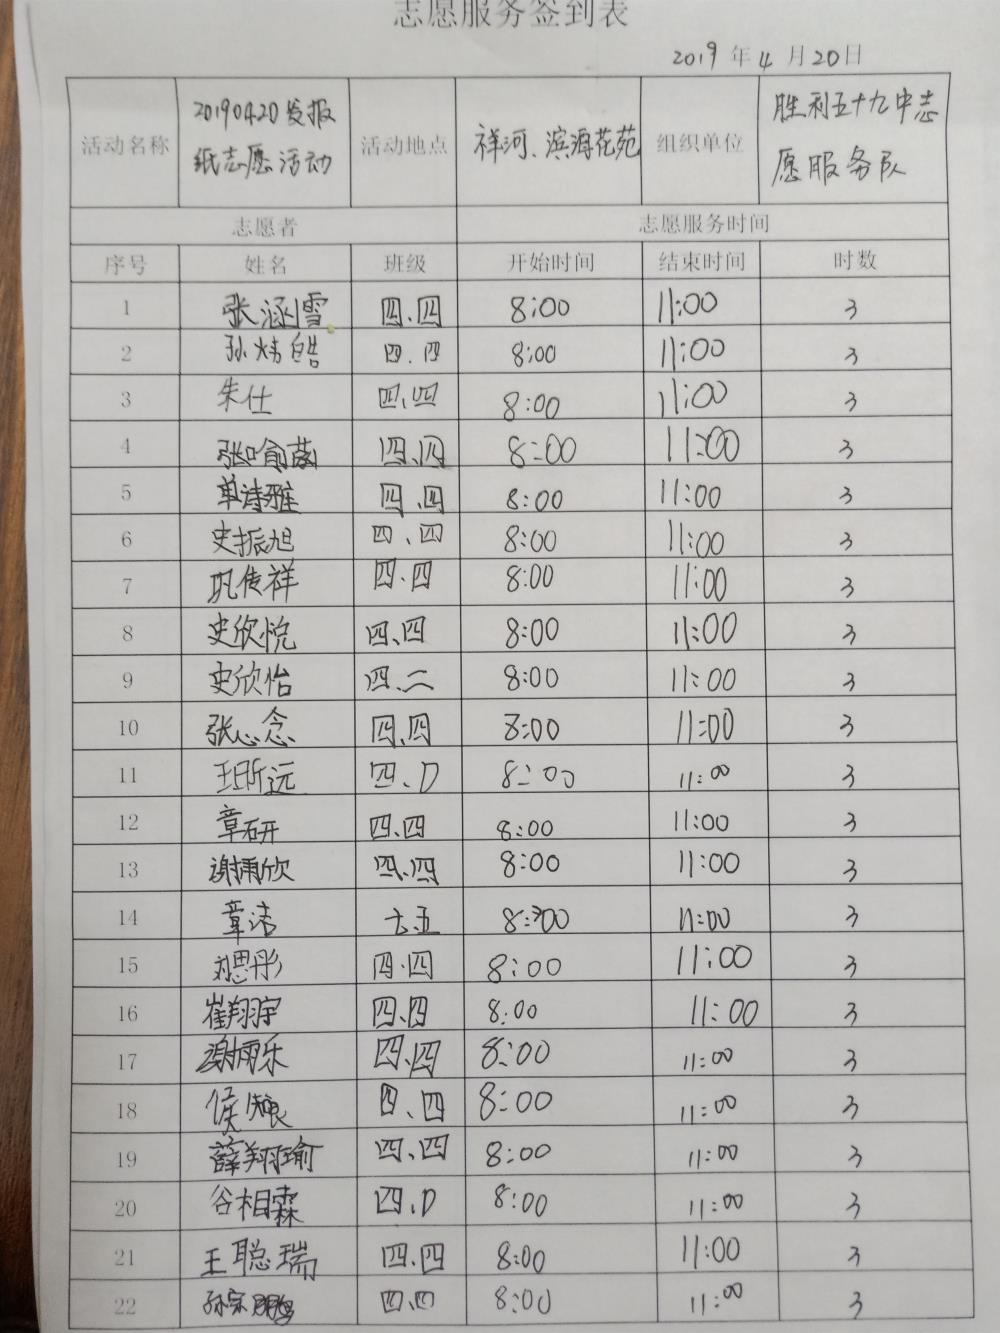 志愿服务签到表
2019 年 4 月 20 日
活动名称 20190420发报纸志愿活动 活动地点 祥河、滨海花苑 组织单位 胜利五十九中志愿服务队
志愿者 志愿服务时间
序号 姓名 班级 开始时间 结束时间 时数
1 张涵雪 四、四 8:00 11:00 3
2 孙炜皓 四、四 8:00 11:00 3
3 朱仕 四、四 8:00 11:00 3
4 张喻 四、四 8:00 11:00 3
5 单诗雅 四、四 8:00 11:00 3
6 史振旭 四、四 8:00 11:00 3
7 巩传祥 四、四 8:00 11:00 3
8 史欣悦 四、四 8:00 11:00 3
9 史欣怡 四、二 8:00 11:00 3
10 张心念 四、四 8:00 11:00 3
11 王昕远 四、 8:00 11:00 3
12 章研 四、四 8:00 11:00 3
13 谢雨欣 四、四 8:00 11:00 3
14 章洁 五 8:00 11:00 3
15 刘思彤 四、四 8:00 11:00 3
16 崔翔宇 四、四 8:00 11:00 3
17 谢雨乐 四、四 8:00 11:00 3
18 侯 四、四 8:00 11:00 3
19 薛翔瑜 四、四 8:00 11:00 3
20 谷相霖 四、 8:00 11:00 3
21 王聪瑞 四、四 8:00 11:00 3
22 孙宗 四、四 8:00 11:00 3